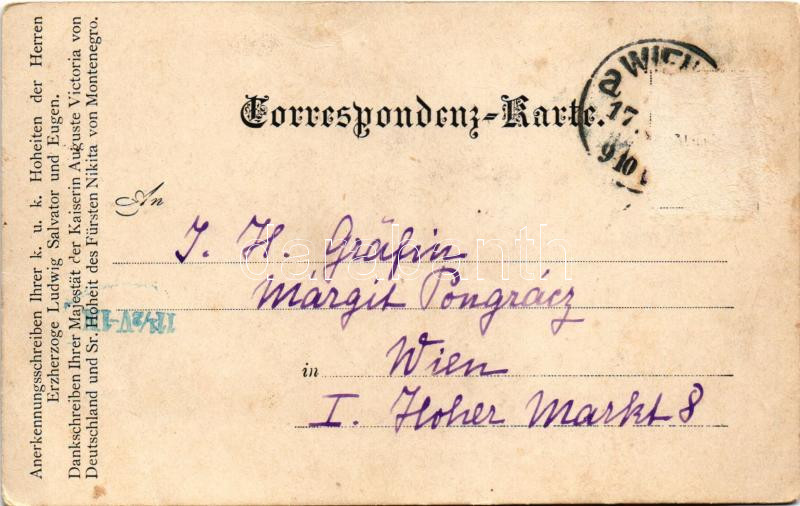 Anerkennungsschreiben Ihrer k. u. k. Hoheiten der Herren
Erzherzoge Ludwig Salvator und Eugen.
Dankschreiben Ihrer Majestät der Kaiserin Auguste Victoria von
Deutschland und Sr. Hoheit des Fürsten Nikita von Montenegro.
Correspondenz-Karte.
WIEN
17.
9 10 V
An
I. H. Gräfin
Márgit Pongrácz
in Wien
I. Hoher Markt 8
darabanth
11½V-1N